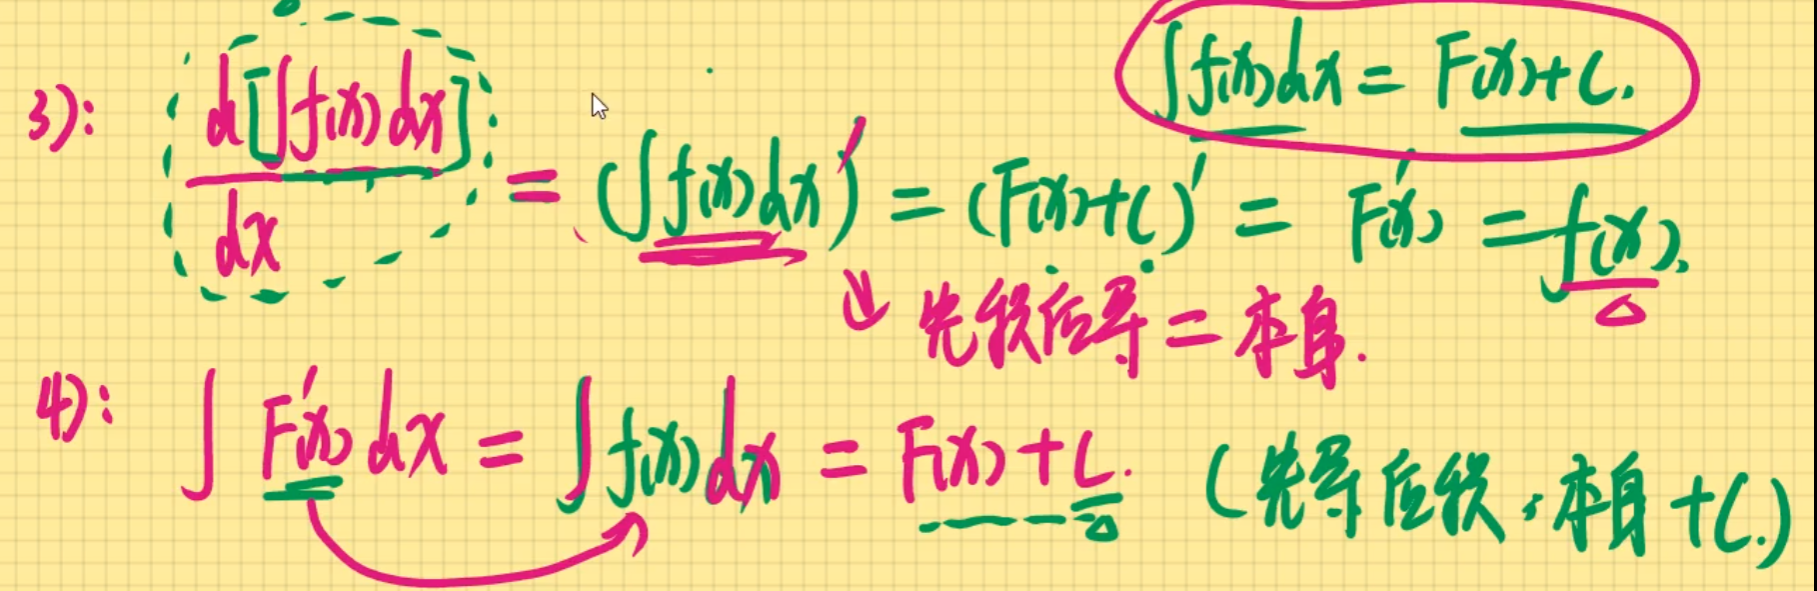 ∫f(x)dx = F(x)+C.
3): d[∫f(x)dx]/dx = (∫f(x)dx)' = (F(x)+C)' = F'(x) = f(x).
先积后导 = 本身.
4): ∫F'(x)dx = ∫f(x)dx = F(x)+C. (先导后积,本身+C.)